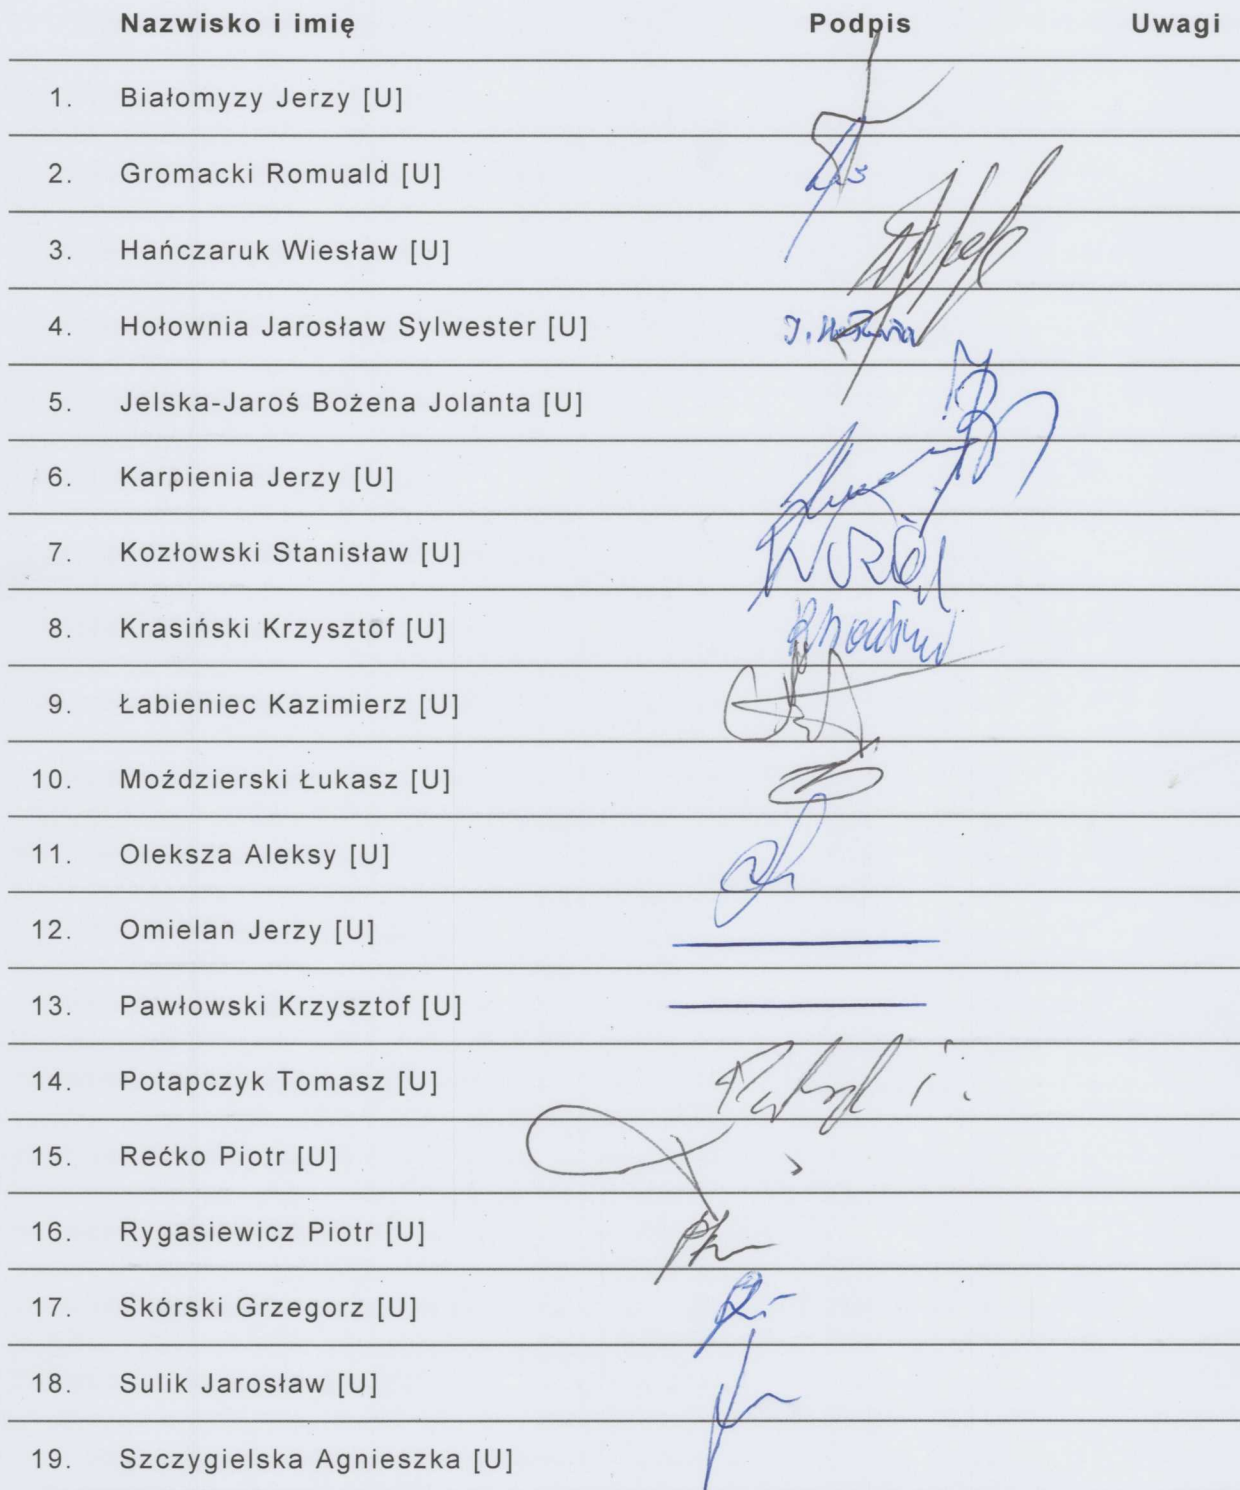 Nazwisko i imię Podpis Uwagi
1. Białomyzy Jerzy [U]
2. Gromacki Romuald [U]
3. Hańczaruk Wiesław [U]
4. Hołownia Jarosław Sylwester [U] J. Hołownia
5. Jelska-Jaroś Bożena Jolanta [U]
6. Karpienia Jerzy [U]
7. Kozłowski Stanisław [U]
8. Krasiński Krzysztof [U]
9. Łabieniec Kazimierz [U]
10. Moździerski Łukasz [U]
11. Oleksza Aleksy [U]
12. Omielan Jerzy [U]
13. Pawłowski Krzysztof [U]
14. Potapczyk Tomasz [U]
15. Rećko Piotr [U]
16. Rygasiewicz Piotr [U]
17. Skórski Grzegorz [U]
18. Sulik Jarosław [U]
19. Szczygielska Agnieszka [U]